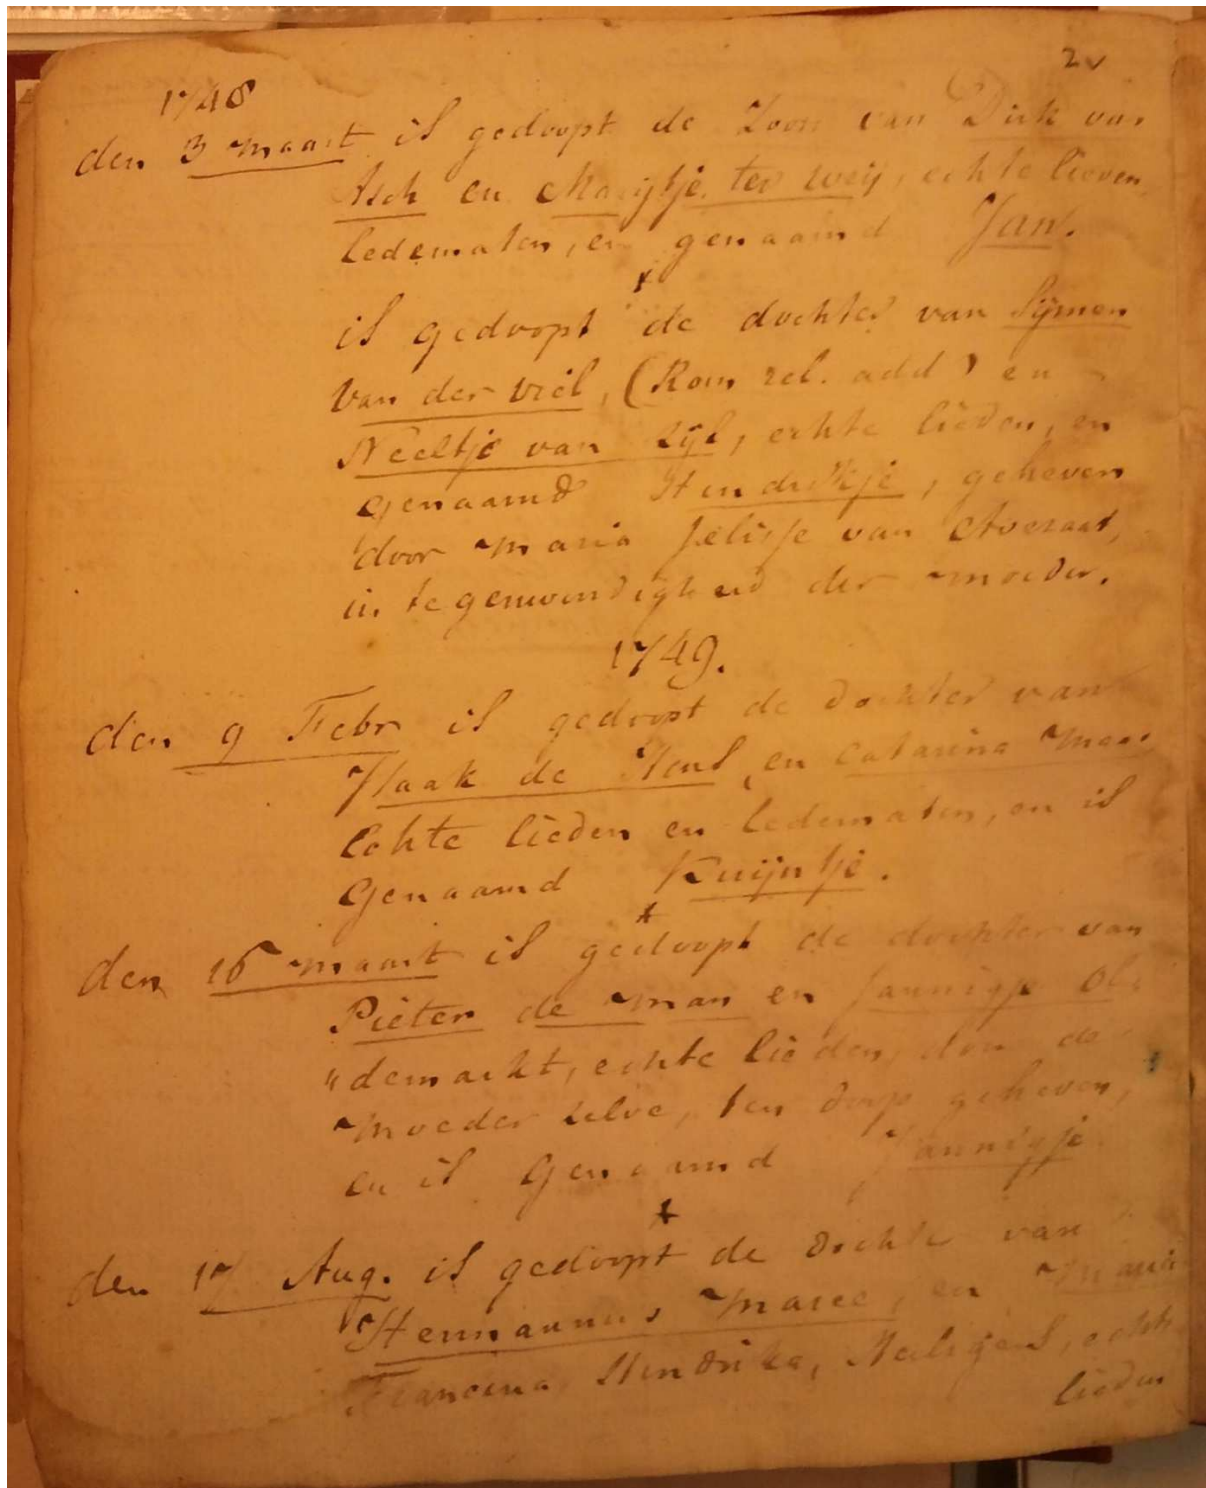 2v
1748
den 3 maart is gedoopt de Zoon van Dirk van
Asch en Marijtje ter weij, echte lieden
ledematen, en genaamd Jan.
is gedoopt de dochter van Sijmen
van der viel, (Rom rel. add) en
Neeltje van zijl, echte lieden, en
genaamd Hendrikje, geheven
door Maria Jelisse van Averaat,
in tegenwoordigheid der moeder.
1749.
den 9 Febr is gedoopt de dochter van
Isaak de Heus en Catarina
Echte lieden en ledematen, en is
Genaamd Kuijntje.
den 16 maart is gedoopt de dochter van
Pieter de man en Jannigje Ol
"demarkt, echte lieden, door de
moeder zelve, ten doop geheven,
en is Genaamd Jannigje
den 17 Aug. is gedoopt de dochte van
Hermannus Maree, en Maria
Francina Hendrika, echte
lieden